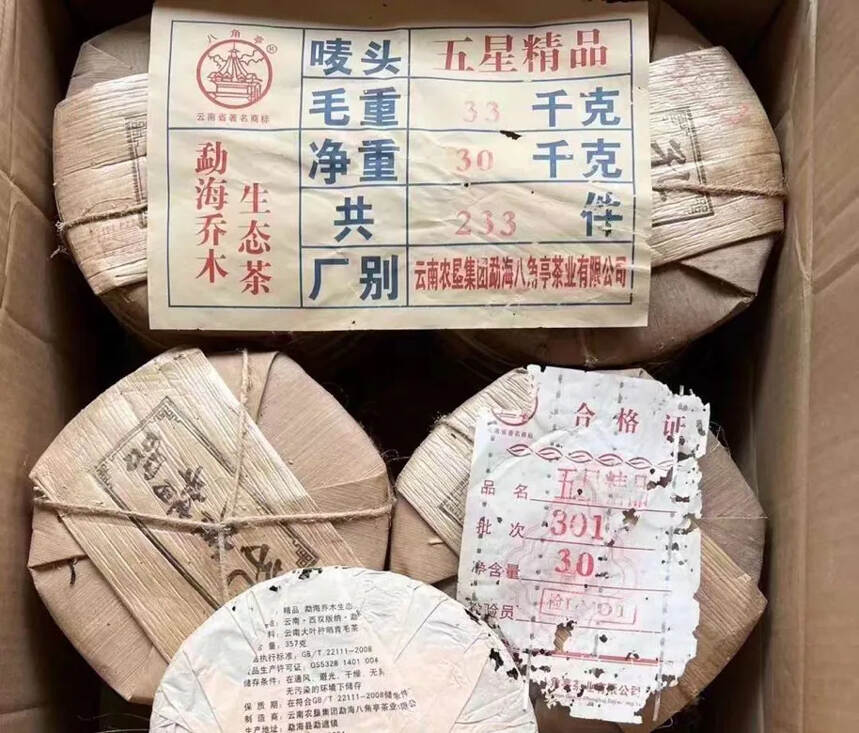 八角亭
云南省著名商标
勐海乔木
生态茶
唛头 五星精品
毛重 33 千克
净重 30 千克
共 233 件
厂别 云南农垦集团勐海八角亭茶业有限公司
合格证
云南省著名商标
品名 五星精品
批次 301
净含量 30
检验员
精品 勐海乔木生态
云南·西双版纳·勐
料：云南大叶种晒青毛茶
量：357克
品执行标准：GB/T 22111-2008
食品生产许可证：QS5328 1401 004
储存条件：在通风、避光、干燥、无异
无污染的环境下储存
保质期：在符合GB/T 22111-2008储条件
制造商：云南农垦集团勐海八角亭茶业有限公
生产地址：勐海县勐遮镇